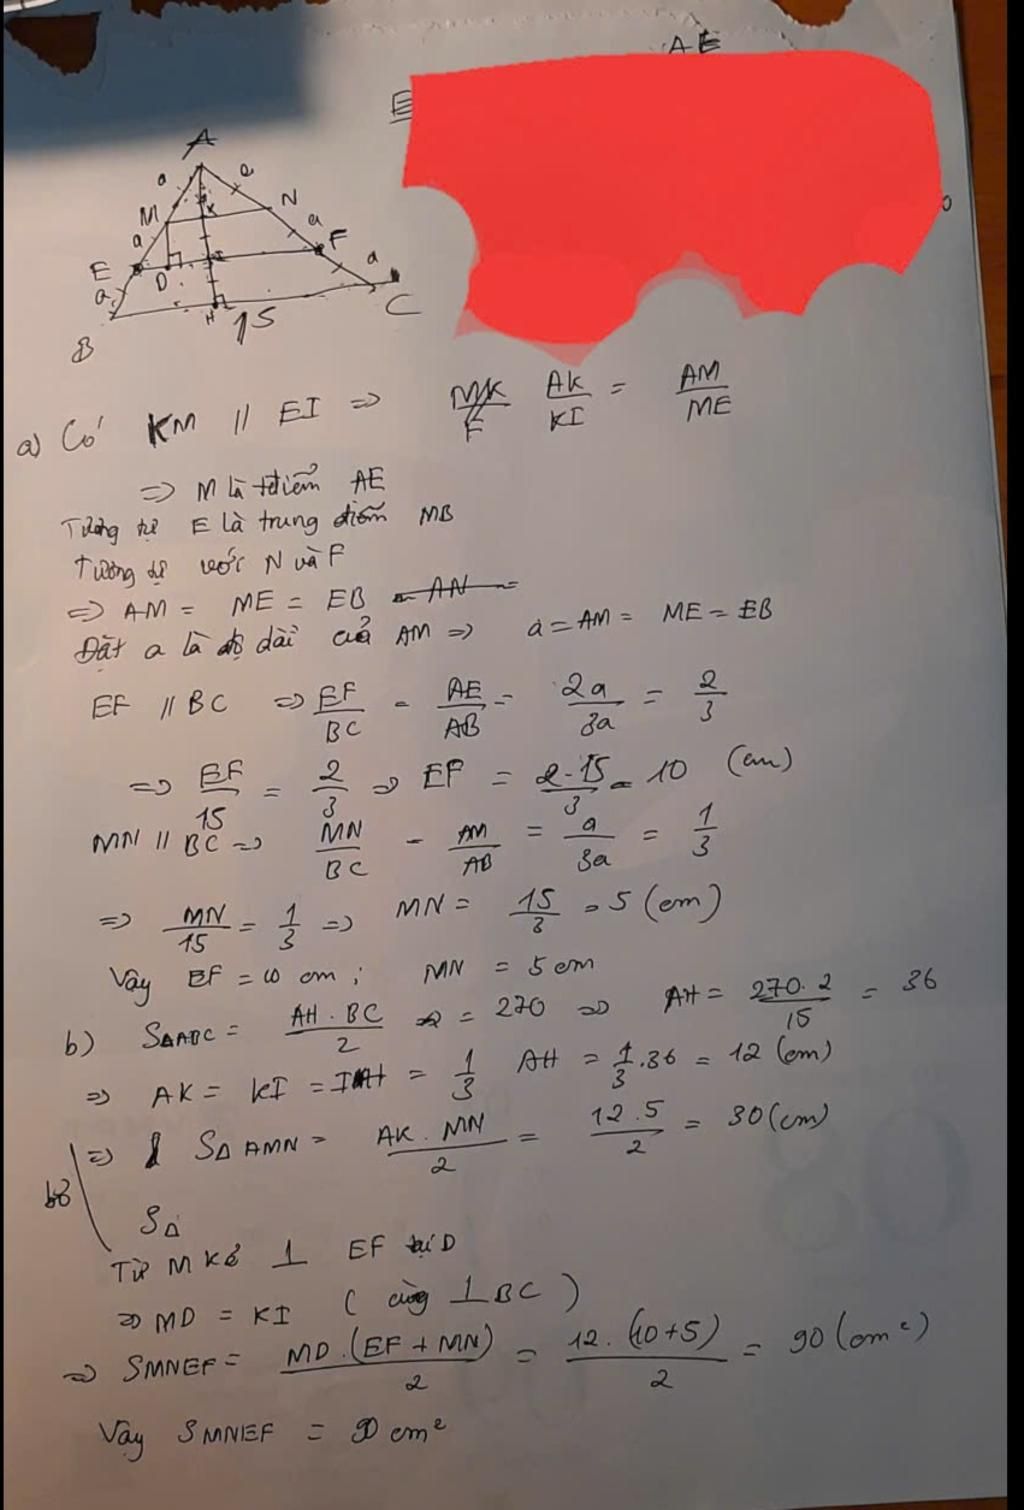 A E
E
A
a
a
M
K
N
a
a
E
D
F
a
a
H
15
C
B
a) Có KM // EI => AK/KI = AM/ME
=> M là tđiểm AE
Tương tự E là trung điểm MB
Tương tự với N và F
=> AM = ME = EB
Đặt a là độ dài của AM => a = AM = ME = EB
EF // BC => EF/BC = AE/AB = 2a/3a = 2/3
=> EF/15 = 2/3 => EF = 2.15/3 = 10 (cm)
MN // BC => MN/BC = AM/AB = a/3a = 1/3
=> MN/15 = 1/3 => MN = 15/3 = 5 (cm)
Vậy EF = 10 cm; MN = 5 cm
b) SΔABC = AH . BC/2 = 270 => AH = 270.2/15 = 36
=> AK = KI = IH = 1/3 AH = 1/3 .36 = 12 (cm)
=> SΔ AMN = AK . MN/2 = 12.5/2 = 30 (cm)
SΔ
Từ M kẻ ⊥ EF tại D
=> MD = KI ( cùng ⊥ BC )
=> SMNEF = MD.(EF + MN)/2 = 12.(10+5)/2 = 90 (cm²)
Vậy SMNEF = 90 cm²